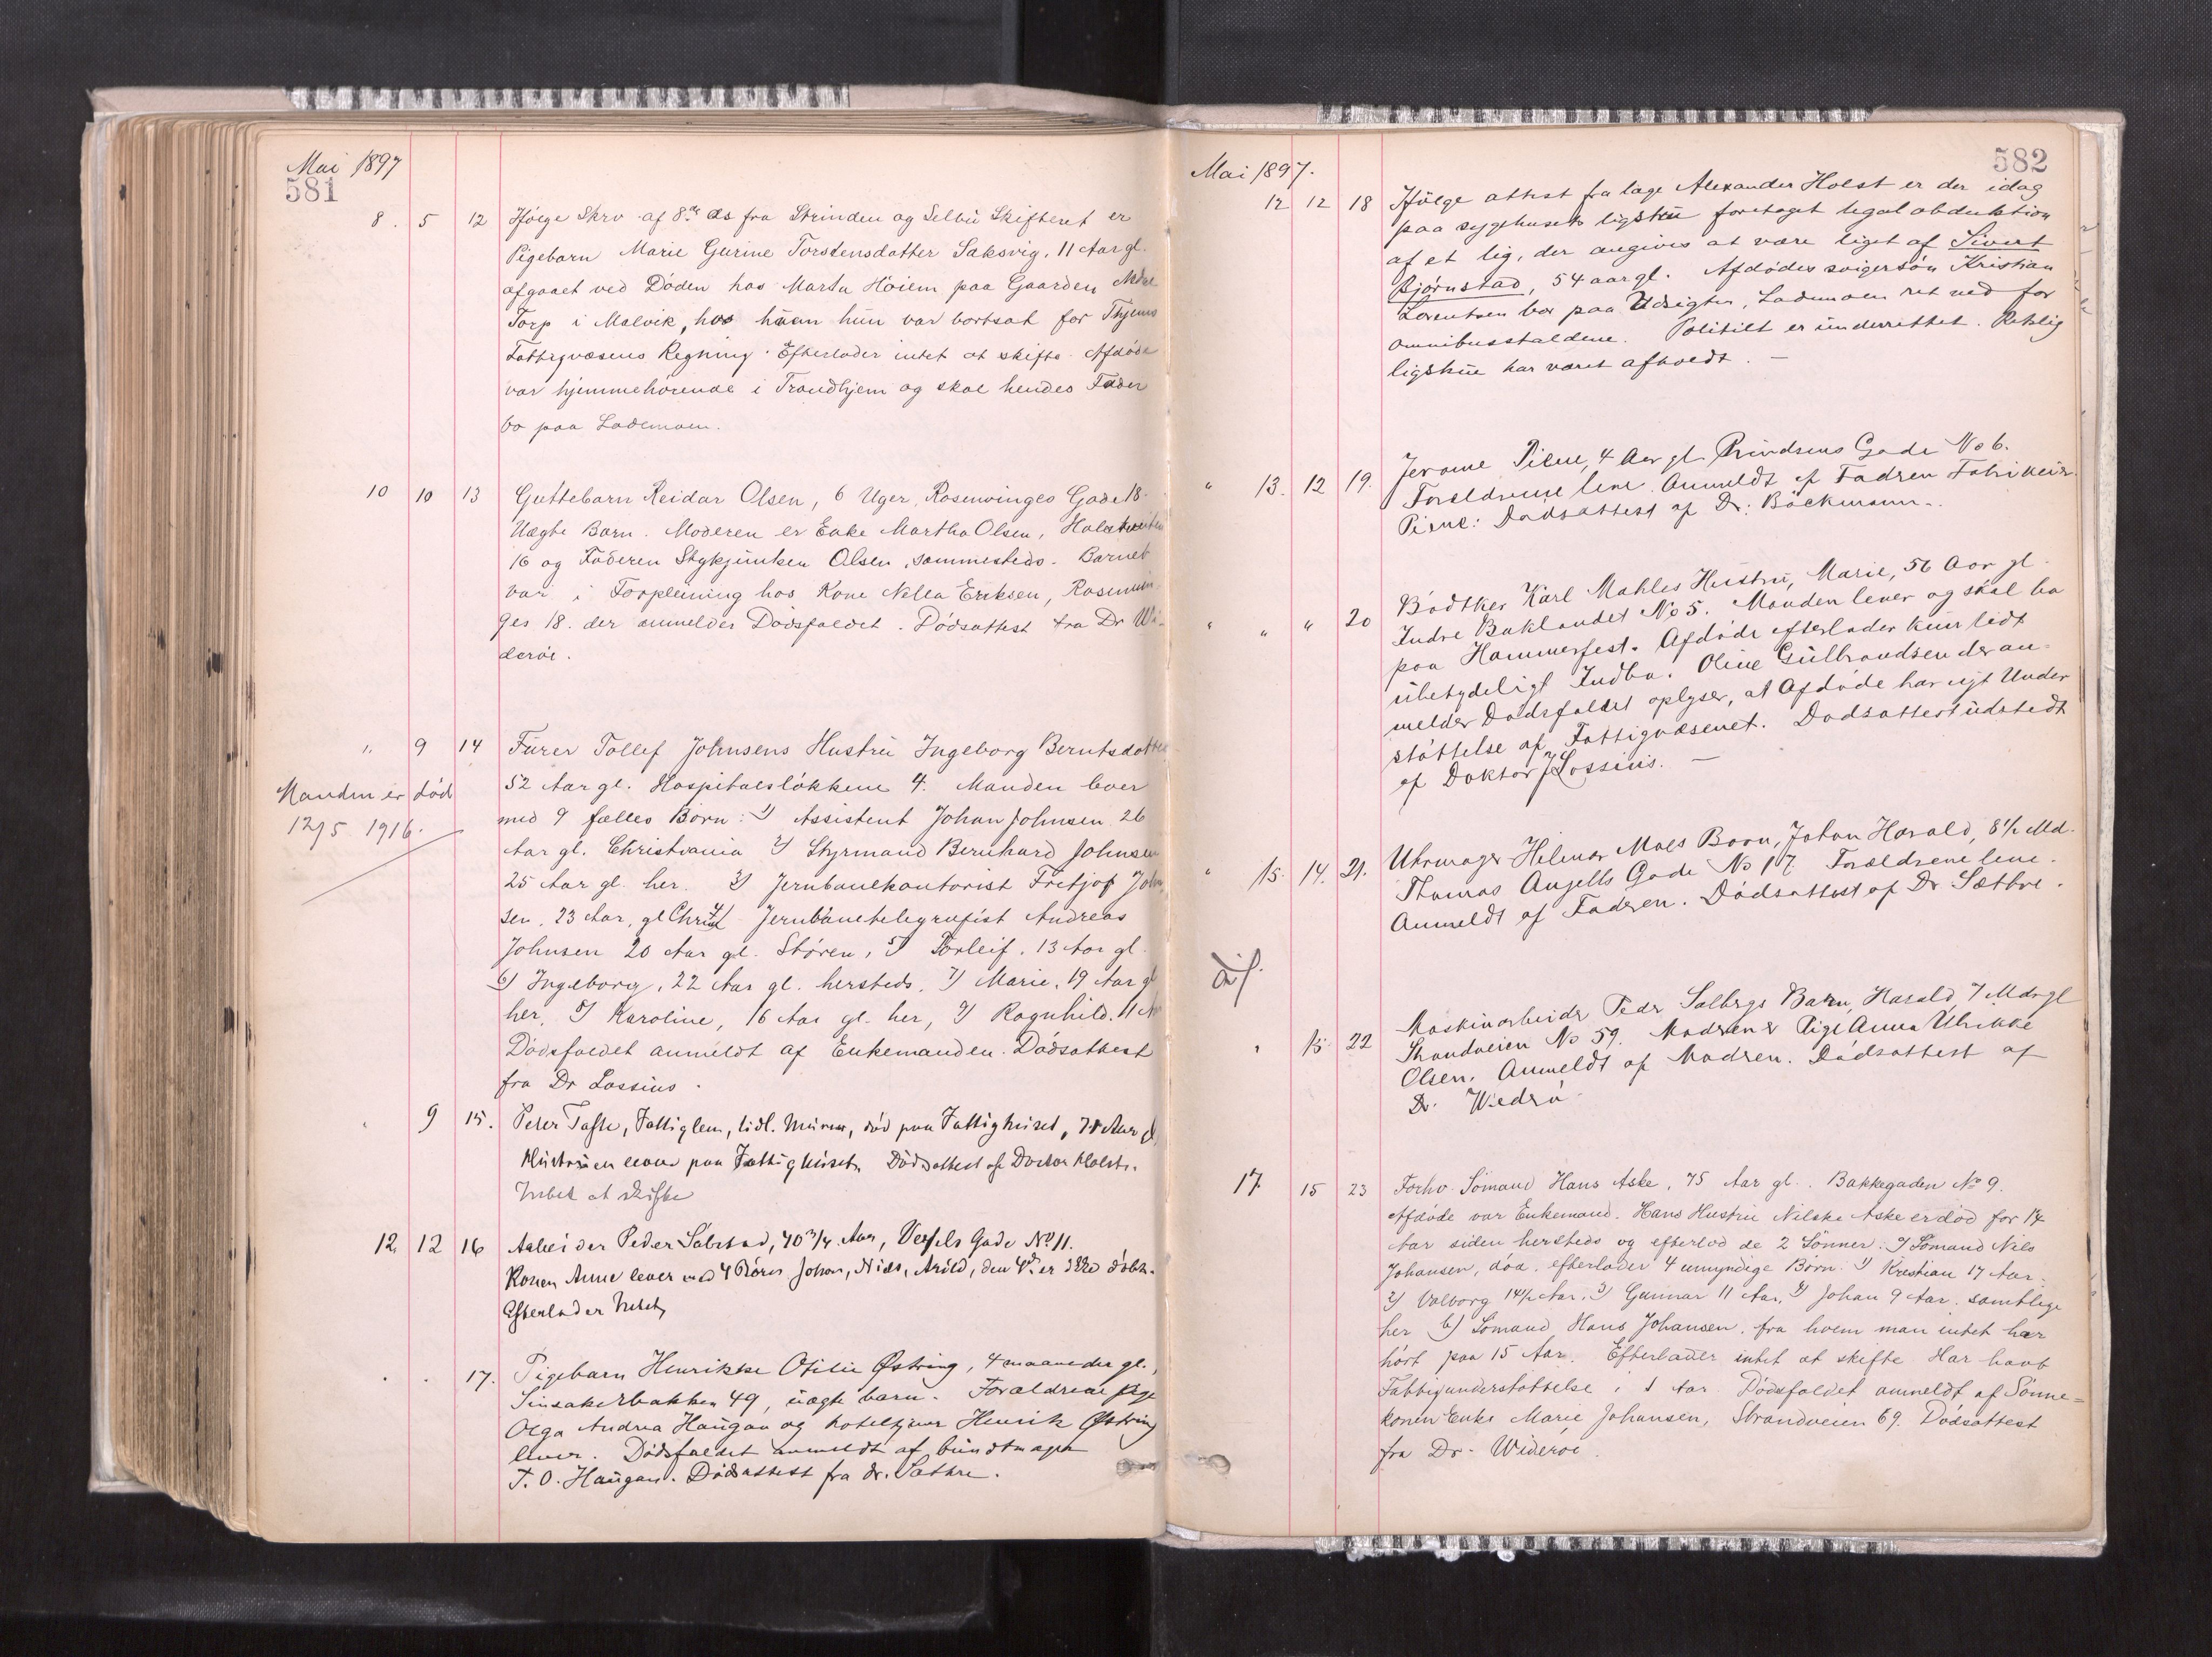 Mai 1897
581
8. 5 12 Ifölge Skrv af 8de ds fra Strinden og Selbu Skifteret er
Pigebarn Marie Gurine Torstensdatter Saksvig, 11 Aar gl.
afgaaet ved Döden hos Marta Höiem paa Gaarden Nedre
Torp i Malvik, hos hvem hun var bortsat for Thjems
Fattigvæsens Regning. Efterlader intet at skifte. Afdöde
var hjemmehörende i Trondhjem og skal hendes Fader
bo paa Lademoen.
10 10 13 Guttebarn Reidar Olsen, 6 Uger, Rosenvinges Gade 18.
Uægte Barn. Moderen er Enke Martha Olsen,
16 og Faderen Olsen, sammesteds. Barnet
var i Forpleining hos Kone Nella Eriksen, Rosenvin-
ges 18. der anmelder Dödsfaldet. Dödsattest fra Dr Wi-
deröe.
" 9 14 Furer Tollef Johnsens Hustru Ingeborg Berntsdatter
52 Aar gl. Hospitalslökkene 4. Manden lever
med 9 fælles Börn: 1) Assistent Johan Johnsen 26
Aar gl. Christiania 2) Styrmand Bernhard Johnsen
25 Aar gl. her. 3) Jernbanekontorist Fritjof John-
sen, 23 Aar, gl Christ 4) Jernbanetelegrafist Andreas
Johnsen 20 Aar gl. Stören, 5) Torleif, 13 Aar gl.
6) Ingeborg, 22 Aar gl. hersteds, 7) Marie, 19 Aar gl
her, 8) Karoline, 16 Aar gl. her, 9) Ragnhild, 11 Aar
Dödsfaldet anmeldt af Enkemanden. Dödsattest
fra Dr Lossius.
Manden er död
12/5 1916.
9 15. Peter Taffe, Fattiglem, tidl. Murer, död paa Fattighuset, Aar gl.
Hustruen lever paa Fattighuset. Dödsattest af Doctor Holst.
Intet at skifte
12. 12 16 Arbeider Peder Sæbstad, 70 3/4 Aar, Vessels Gade No 11.
Konen Anne lever med 4 Börn Johan, Nils, Arild, den 4de er ikke döbt.
Efterlader Intet
" " 17. Pigebarn Henrikke Otilie Østring, 4 maaneder gl.,
Sinsakerbakken 49, uægte barn. Forældrene pige
Olga Andrea Haugan og hotelkjører Henrik Østring
lever. Dödsfaldet anmeldt af bundtmager
T. O. Haugan. Dödsattest fra dr. Sæthre.
Mai 1897.
582
12 12 18 Ifölge attest fra læge Alexander Holst er der idag
paa sygehusets ligstue foretaget legal obduktion
af et lig, der angives at være liget af Sivert
Bjørnstad, 54 aar gl. Afdödes svigersön Kristian
Lorentsen bor paa Udsigten, Lademoen ret ned for
omnibusstaldene. Politiet er underrettet. Retslig
ligskue har været afholdt. —
" 13. 12 19. Jerome Pirne, 4 Aar gl. Prindsens Gade No 6.
Forældrene leve. Anmeldt af Fadren Fabrikeier
Pirne: Dödsattest af Dr. Böckmann.
" " " 20 Bödtker Karl Mahles Hustru, Marie, 56 Aar gl.
Indre Baklandet No 5. Manden lever og skal bo
paa Hammerfest. Afdöde efterlader kun lidt
ubetydeligt Indbo. Oline Gulbrandsen der an-
melder Dödsfaldet oplyser, at Afdöde har nyt Under
stöttelse af Fattigvæsenet. Dödsattest udstedt
af Doktor Lossius. —
" 15. 14. 21. Uhrmager Hilmar Moes Barn, Johan Harald, 8 1/2 Md.
Thomas Angells Gade No 17. Forældrene leve.
Anmeldt af Fadren. Dödsattest af Dr Sæthre.
" 15 22 Maskinarbeider Peder Solbergs Barn, Harald, 7 Mdr gl
Strandveien No 59. Moderen er Pige Anna Ulrikke
Olsen. Anmeldt af Modren. Dödsattest af
Dr. Wiedrö
17 15 23 Forhv. Sömand Hans Aske, 75 Aar gl.. Bakkegaden No 9.
Afdöde var Enkemand. Hans Hustru Nilske Aske er död for 14
Aar siden hersteds og efterlod de 2 Sönner: a) Sömand Nils
Johansen, död. efterlader 4 umyndige Börn: 1) Kristian 17 Aar.
2) Valborg 14 1/2 Aar, 3) Gunnar 11 Aar, 4) Johan 9 Aar. samtlige
her b) Sömand Hans Johansen. fra hvem man intet har
hört paa 15 Aar. Efterlader intet at skifte Har havt
Fattigunderstöttelse i 1 Aar Dödsfaldet anmeldt af Sönne-
konen Enke Marie Johansen, Strandveien 69. Dödsattest
fra Dr. Wideröe.